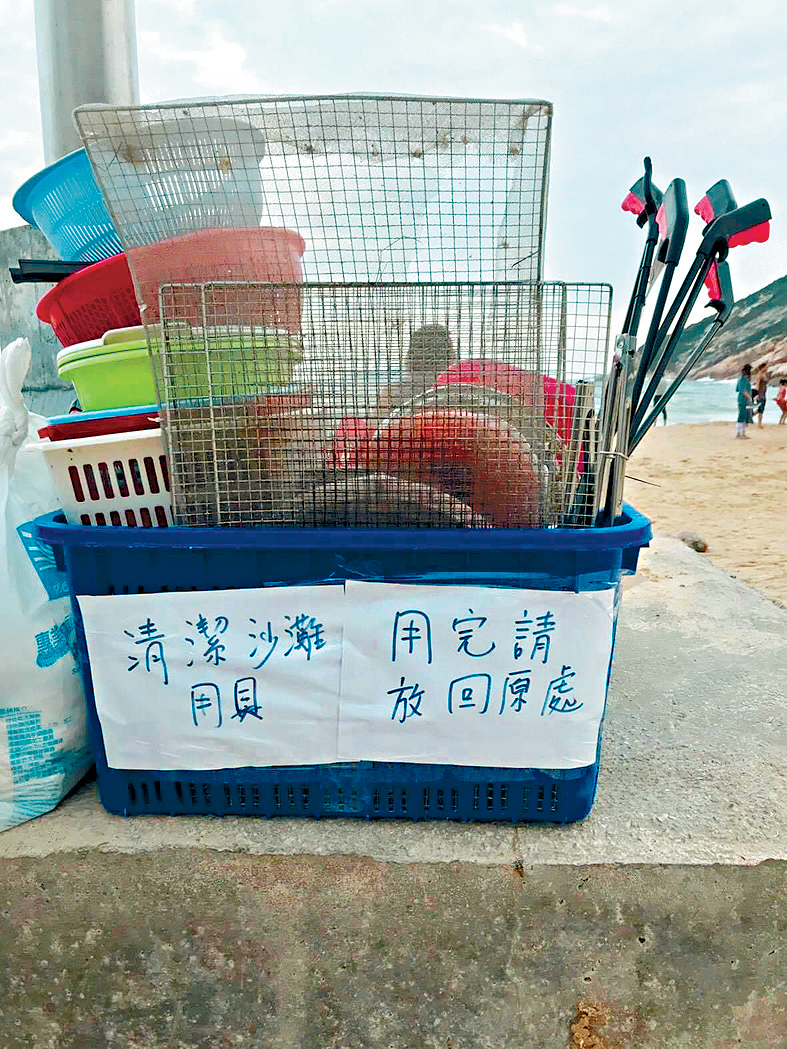 清潔沙灘
用具
用完請
放回原處